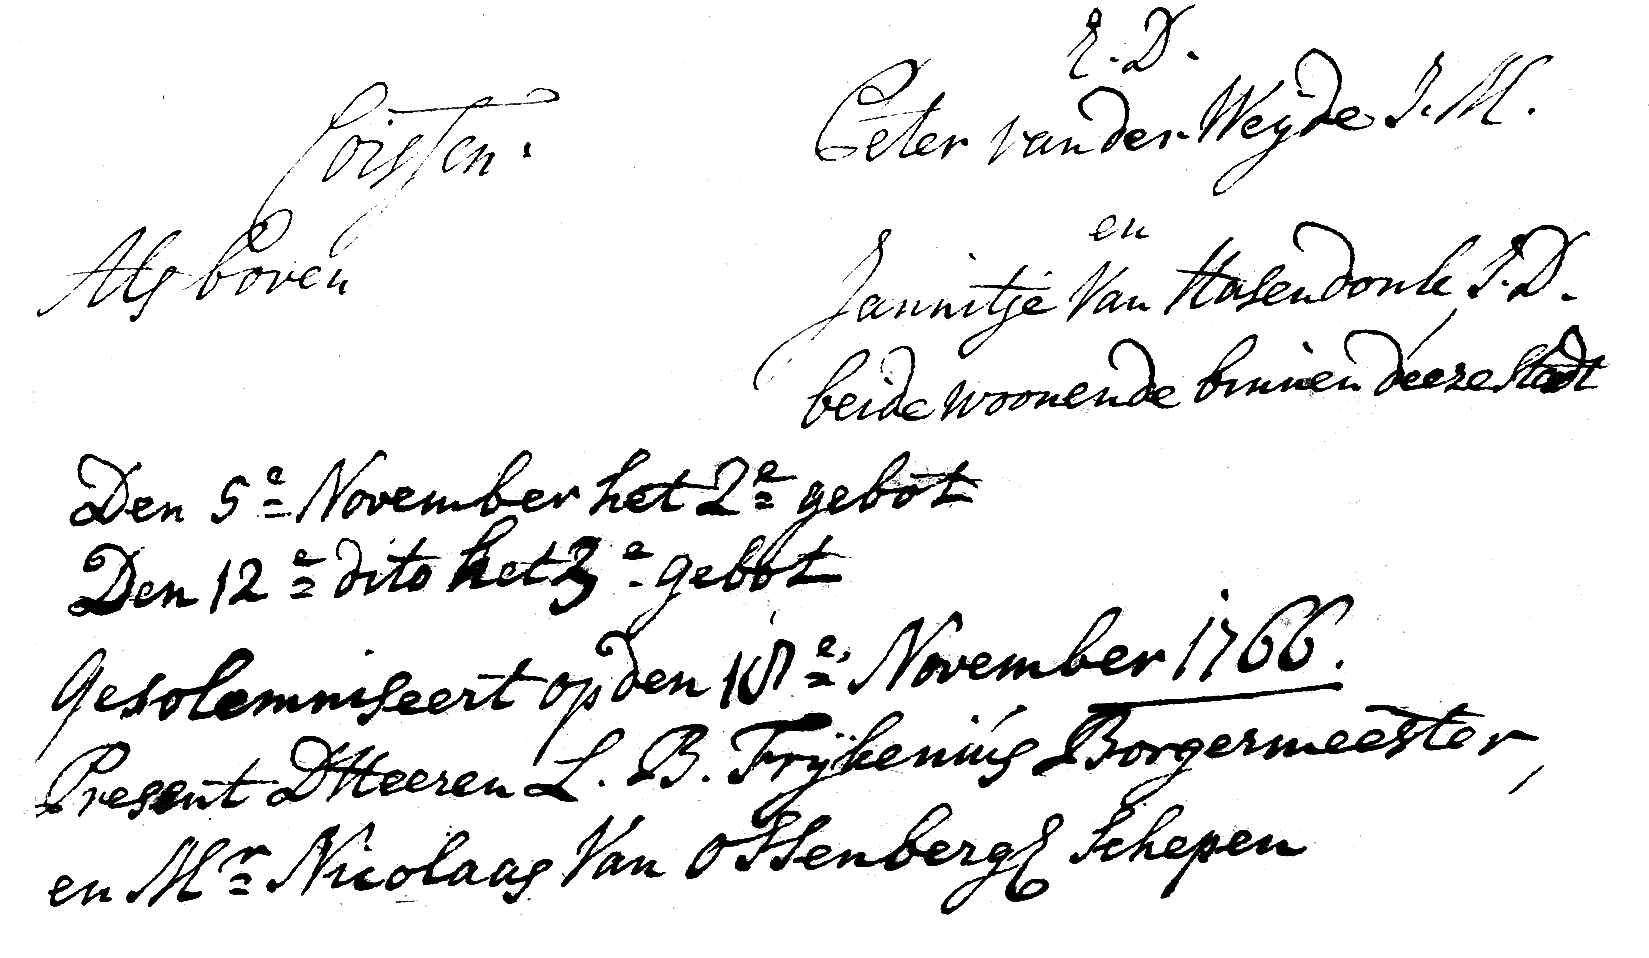 E. D.
Corssen.
Peter van der Weyde J. M.
en
Als boven
Jannitje Van Hasendonk J. D.
beide woonende binnen deeze Stadt
Den 5e November het 2e gebot
Den 12e dito het 3e gebot
Gesolemniseert op den 18e November 1766.
Present DHeeren L. B. Frijkenius Borgermeester,
en Mr Nicolaas Van Ossenberg Schepen